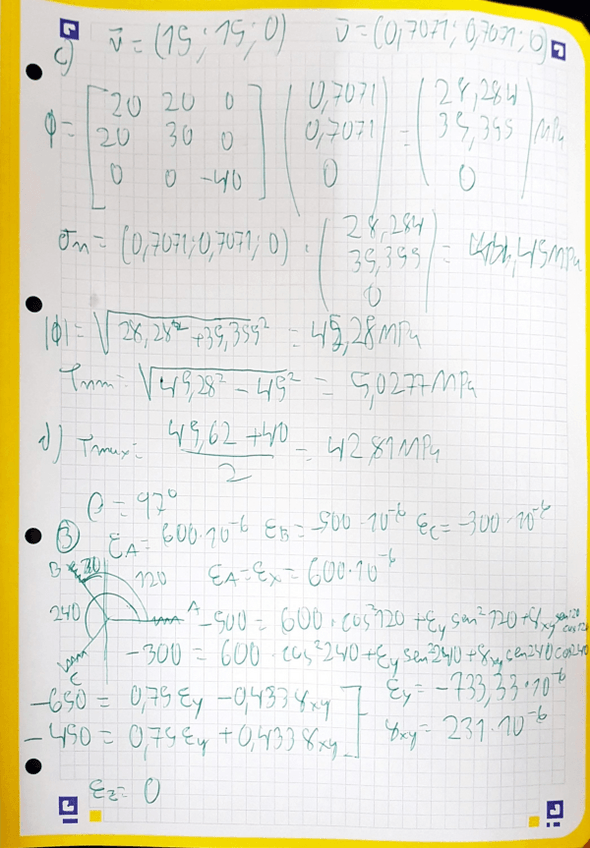 c) v̄ = (15; 15; 0) ū = (0,7071; 0,7071; 0)
ϕ = [20 20 0; 20 30 0; 0 0 -40] (0,7071; 0,7071; 0) = (28,284; 35,355; 0) MPa
σn = (0,7071; 0,7071; 0) · (28,284; 35,355; 0) = 45 MPa
|ϕ| = √28,28² + 35,355² = 45,28 MPa
τnm = √45,28² - 45² = 5,0277 MPa
d) τmax = 45,62 + 40 / 2 = 42,81 MPa
θ = 97°
③ εA = 600·10⁻⁶ εB = -500·10⁻⁶ εC = -300·10⁻⁶
B 120 εA = εx = 600·10⁻⁶
240 A -500 = 600·cos²120 + εy sen²120 + γxy sen120 cos120
C -300 = 600·cos²240 + εy sen²240 + γxy sen240 cos240
-650 = 0,75 εy - 0,433 γxy εy = -733,33·10⁻⁶
-450 = 0,75 εy + 0,433 γxy γxy = 231·10⁻⁶
εz = 0